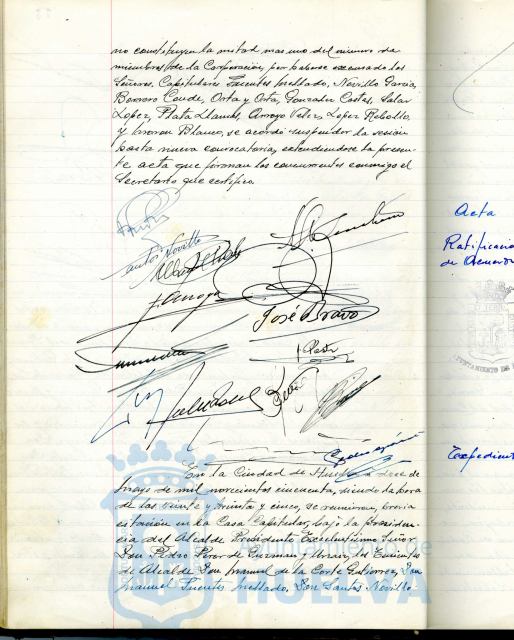 no constituyen la mitad mas uno del número de
miembros de la Corporación, por haberse excusado los
Señores Capitulares Fuentes Mellado, Novillo Garcia,
Borrero Conde, Orta y Orta, Gonzalez Costes, Salas
Lopez, Plata Llanes, Arroyo Velez, Lopez Rebollo
y Moron Blanco, se acordó suspender la sesión
hasta nueva convocatoria, extendiendose la presen-
te acta que firman los concurrentes conmigo el
Secretario que certifico.
Santos Novillo
J. Arroyo
José Bravo
Acta
Ratificación
de Acuerdo
AYUNTAMIENTO DE
Expediente
En la Ciudad de Huelva a doce de
mayo de mil novecientos cincuenta, siendo la hora
de las veinte y treinta y cinco, se reunieron, previa
citación en la Casa Capitular, bajo la presiden-
cia del Alcalde Presidente Excelentísimo Señor
Don Pedro Perez de Guzman y Urzaiz, los Tenientes
de Alcalde Don Manuel de la Corte Gutierrez, Don
Manuel Fuentes Mellado, Don Santos Novillo
HUELVA